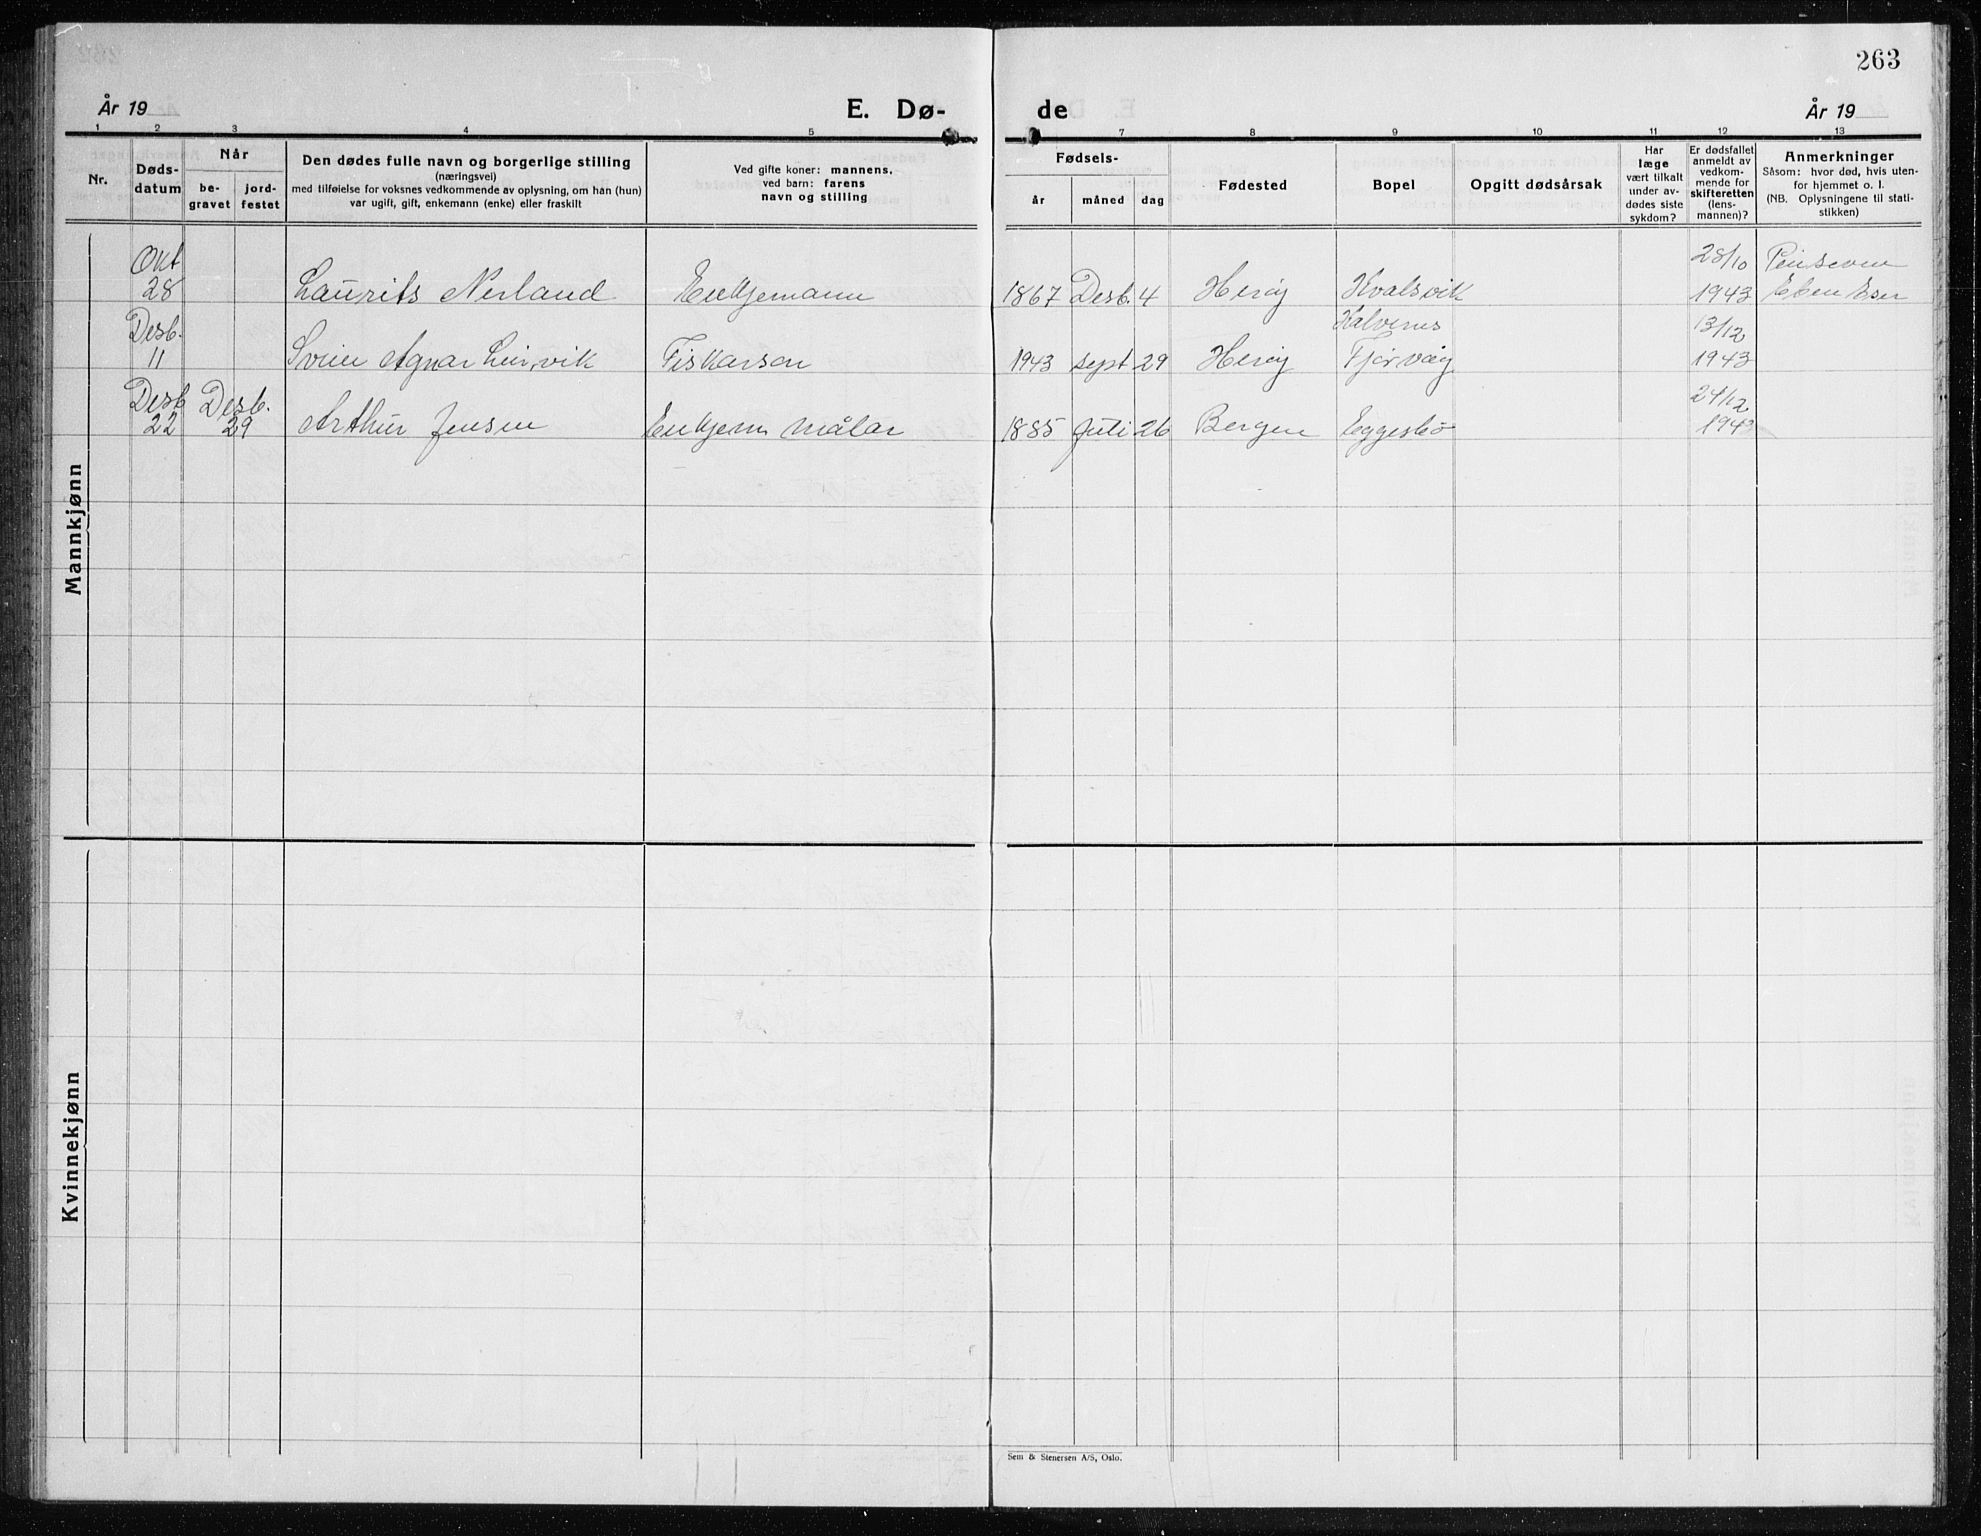 263
År 19
E. Dø-
de
År 19
1 2 3 4 5 7 8 9 10 11 12 13
Nr.
Døds-
datum
Når
be-
gravet
jord-
festet
Den dødes fulle navn og borgerlige stilling
(næringsvei)
med tilføielse for voksnes vedkommende av oplysning, om han (hun)
var ugift, gift, enkemann (enke) eller fraskilt
Ved gifte koner: mannens.
ved barn: farens
navn og stilling
Fødsels-
år måned dag
Fødested
Bopel
Opgitt dødsårsak
Har
læge
vært tilkalt
under av-
dødes siste
sykdom?
Er dødsfallet
anmeldt av
vedkom-
mende for
skifteretten
(lens-
mannen)?
Anmerkninger
Såsom: hvor død, hvis uten-
for hjemmet o. l.
(NB. Oplysningene til stati-
stikken)
Mannkjønn
Okt 28/10
28 Laurits Nerland Enkjemann 1867 Desb. 4 Herøy Kvalsvik 1943 Eben Eser
Desb. Kalvenes 13/12
11 Svein Agnar Leirvik Fiskarson 1943 sept 29 Herøy Tjørvåg 1943
Desb Desb. 24/12
22 29 Arthur Jensen Enkjem målar 1885 Juli 26 Bergen Eggesbö 1943
Kvinnekjønn
Sem & Stenersen A/S, Oslo.